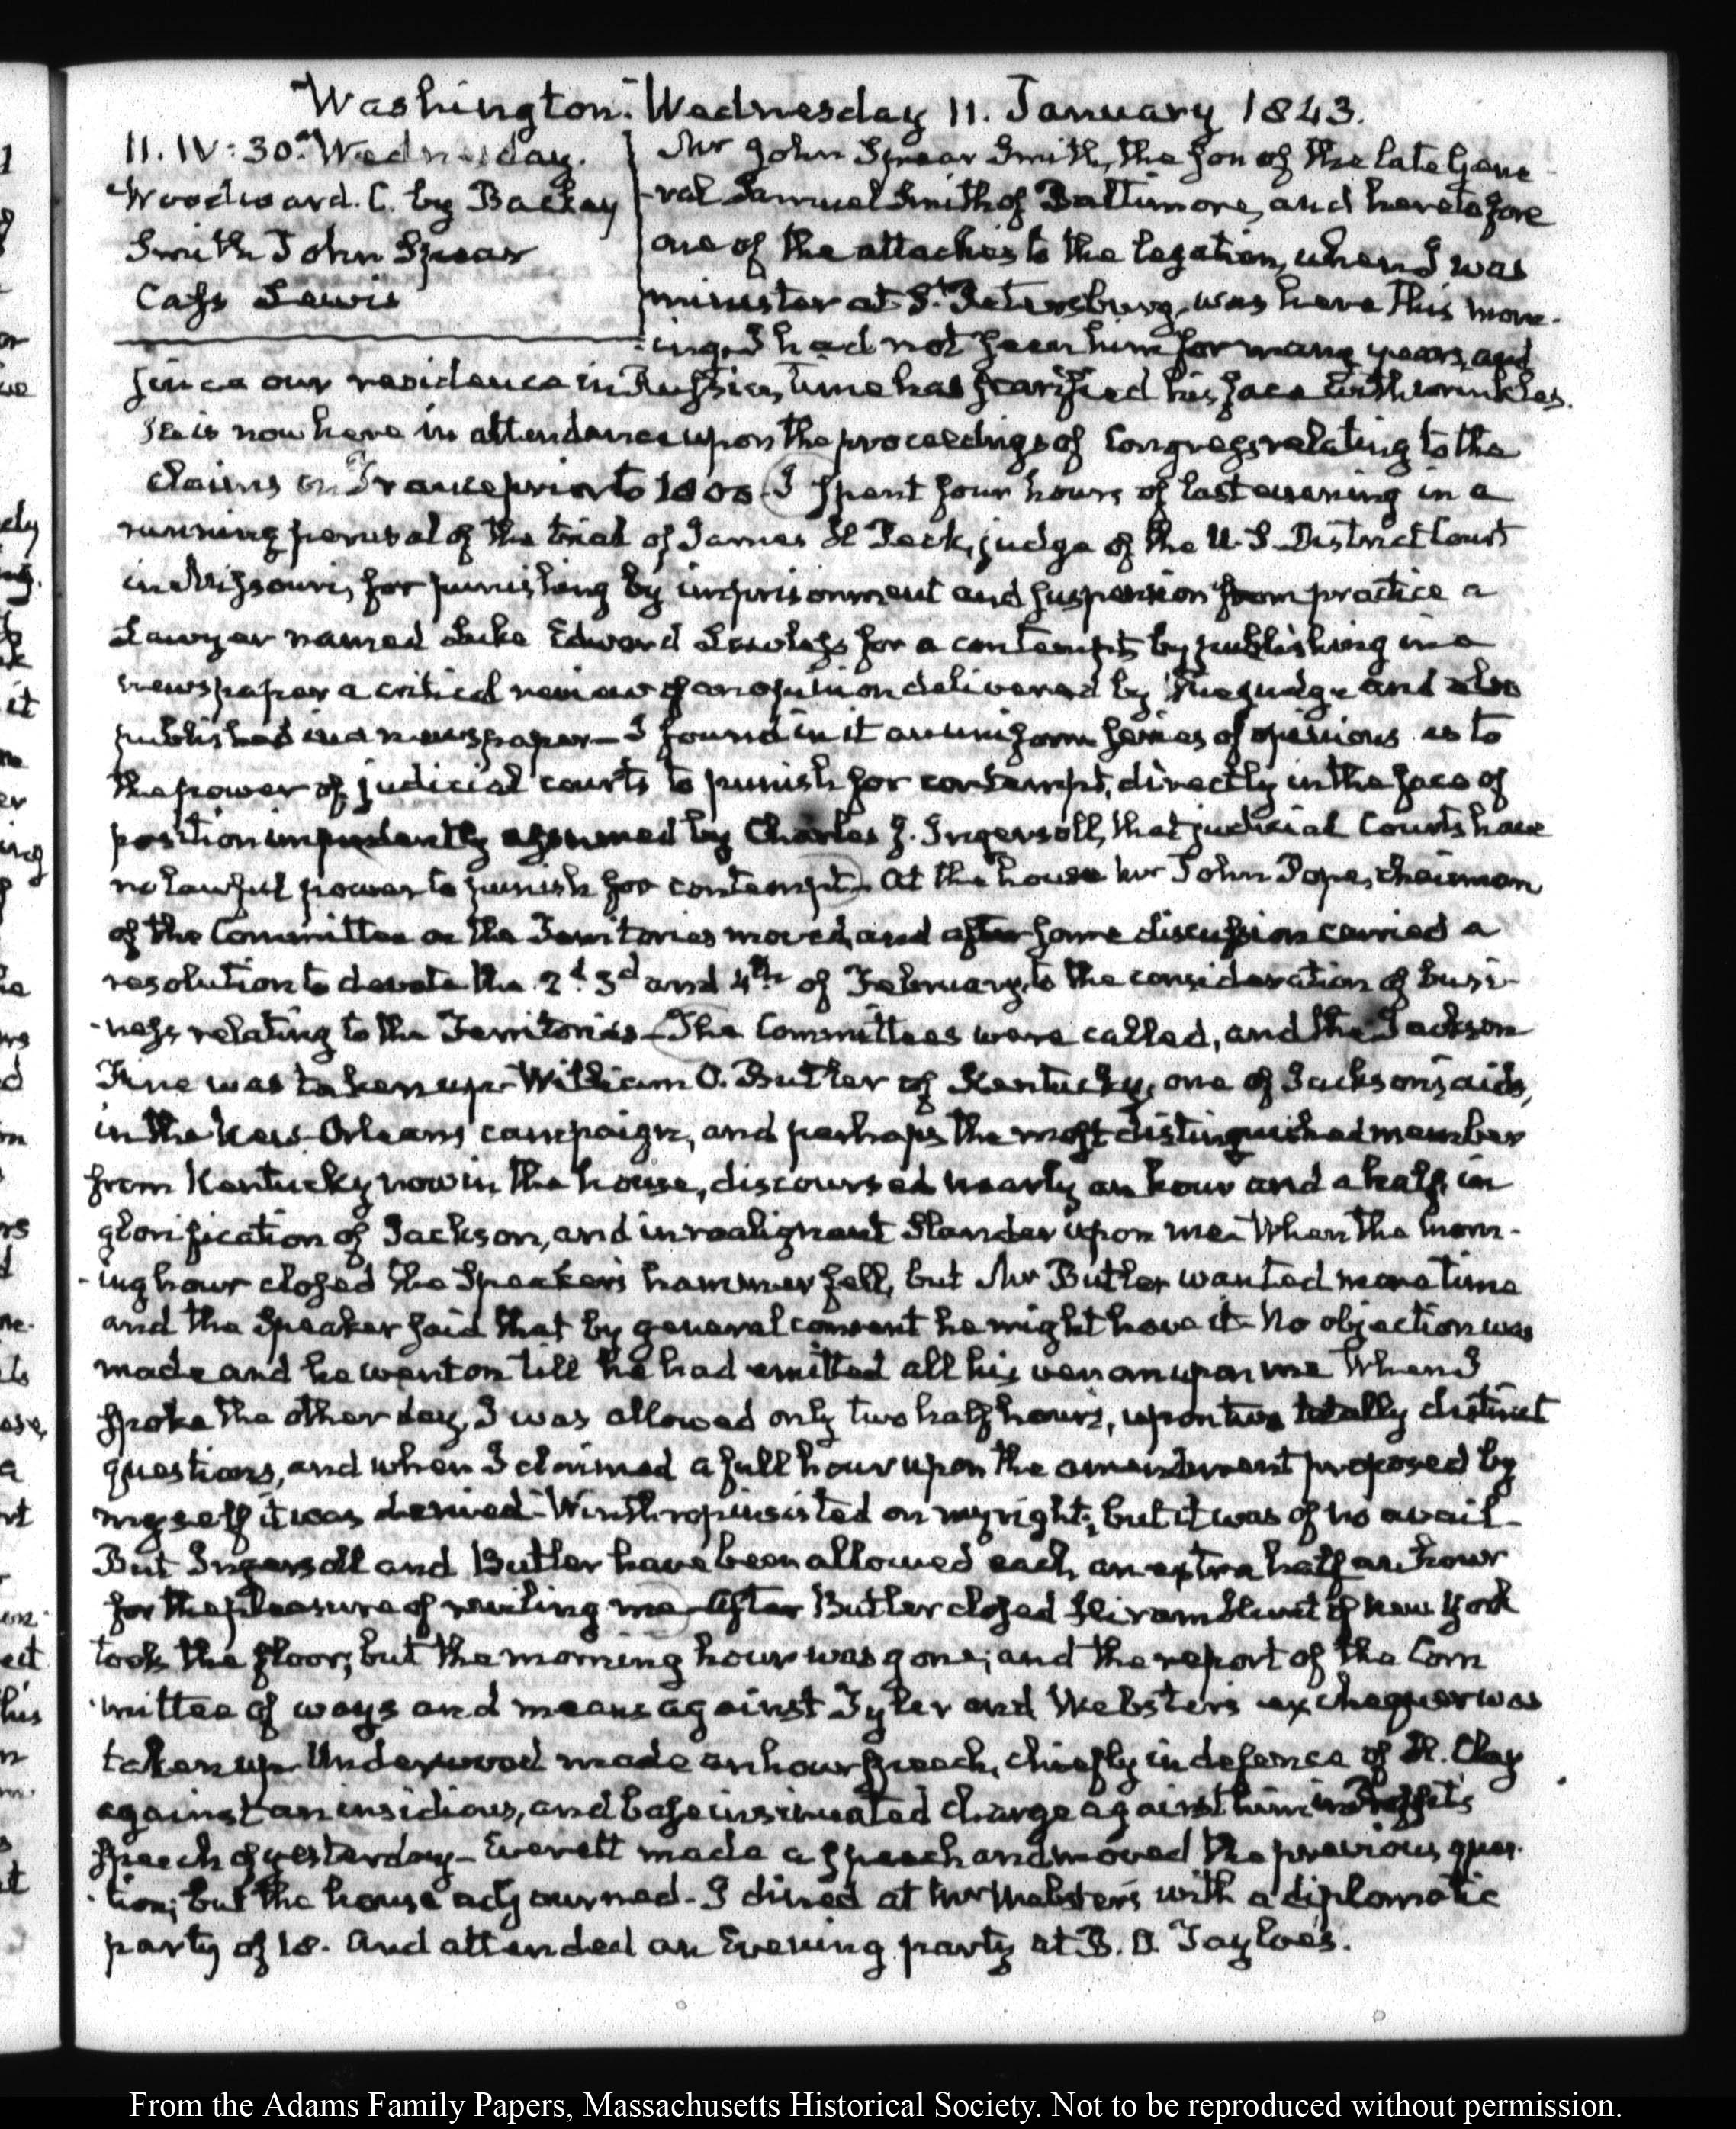 Washington. Wednesday 11. January 1843.
11. IV:30. Wednesday.
Woodward. C. by
Smith John Spear
Cass Lewis
Mr John Spear Smith, the son of the late Gene-
ral Samuel Smith of Baltimore, and heretofore
one of the attachés to the legation, when I was
minister at St. Petersburg, was here this morn-
ing. I had not seen him for many years, and
since our residence in Russia, time has scarified his face with wrinkles.
He is now here in attendance upon the proceedings of Congress relating to the
claims on France prior to 1800 - I spent four hours of last evening in a
running perusal of the trial of James H Peck, judge of the U.S. District Court
in Missouri, for punishing by imprisonment and suspension from practice a
Lawyer named Luke Edward Lawless for a contempt by publishing in a
newspaper a critical review of an opinion delivered by the judge and also
published in a newspaper - I found in it an uniform series of opinions as to
the power of judicial courts to punish for contempt, directly in the face of
position impudently assumed by Charles J. Ingersoll, that judicial Courts have
no lawful power to punish for contempt - At the house Mr John Pope, chairman
of the Committee on the Territories moved, and after some discussion carried a
resolution to devote the 2d. 3d and 4th of February, to the consideration of busi-
-ness relating to the Territories - The Committees were called, and the Jackson
Fine was taken up - William O. Butler of Kentucky, one of Jackson's aids,
in the New-Orleans campaign, and perhaps the most distinguished member
from Kentucky now in the house, discoursed nearly an hour and a half, in
glorification of Jackson, and in malignant slander upon me - When the morn-
-ing hour closed the Speaker's hammer fell, but Mr Butler wanted more time
and the Speaker said that by general consent he might have it - No objection was
made and he went on till he had emitted all his venom upon me When I
spoke the other day, I was allowed only two half hours, upon two totally distinct
questions, and when I claimed a full hour upon the amendment proposed by
myself it was denied - Winthrop insisted on my right; but it was of no avail -
But Ingersoll and Butler have been allowed each, an extra half an hour
for the pleasure of reviling me - After Butler closed Hiram Hunt of New York
took the floor; but the morning hour was gone; and the report of the Com
-mittee of ways and means against Tyler and Webster's exchequer was
taken up - Underwood made an hour speech, chiefly in defence of H. Clay
against an insidious, and base insinuated charge against him in Proffit's
speech of yesterday - Everett made a speech and moved the previous ques-
-tion; but the house adjourned - I dined at Mr Webster's with a diplomatic
party of 18. And attended an Evening party at B. O. Tayloe's.
From the Adams Family Papers, Massachusetts Historical Society. Not to be reproduced without permission.